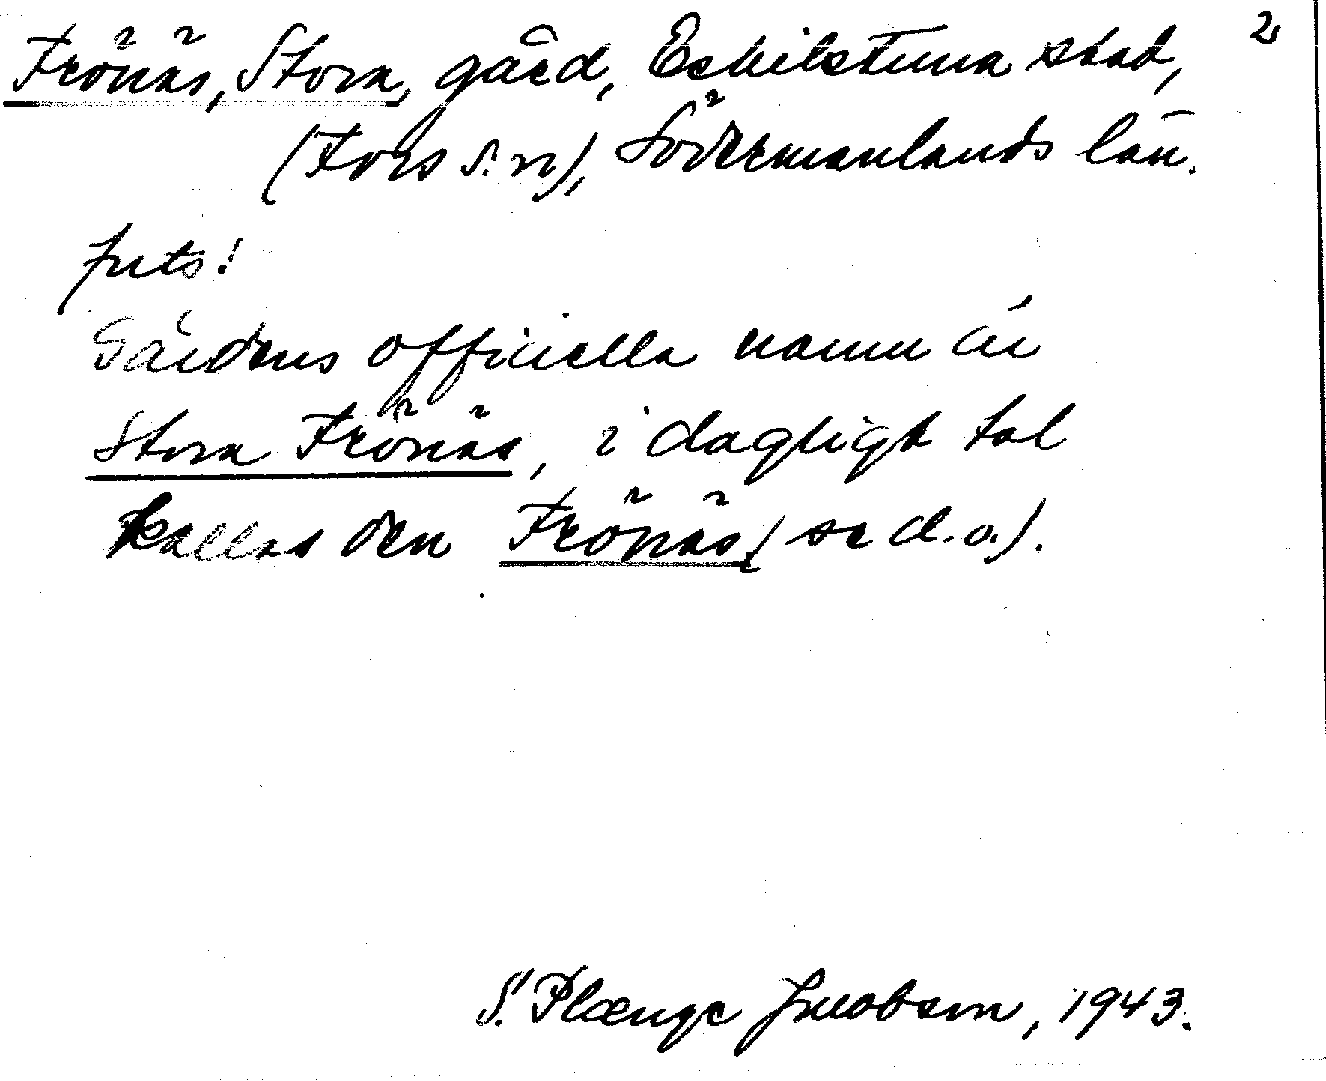 Frönäs, Stora, gård, Eskilstuna stad, 2
(Fors s:n), Södermanlands län.
puts!
Gårdens officiella namn är
Stora Frönäs, i dagligt tal
kallas den Frönäs (se d.o.).
S. Plænge Jacobson, 1943.